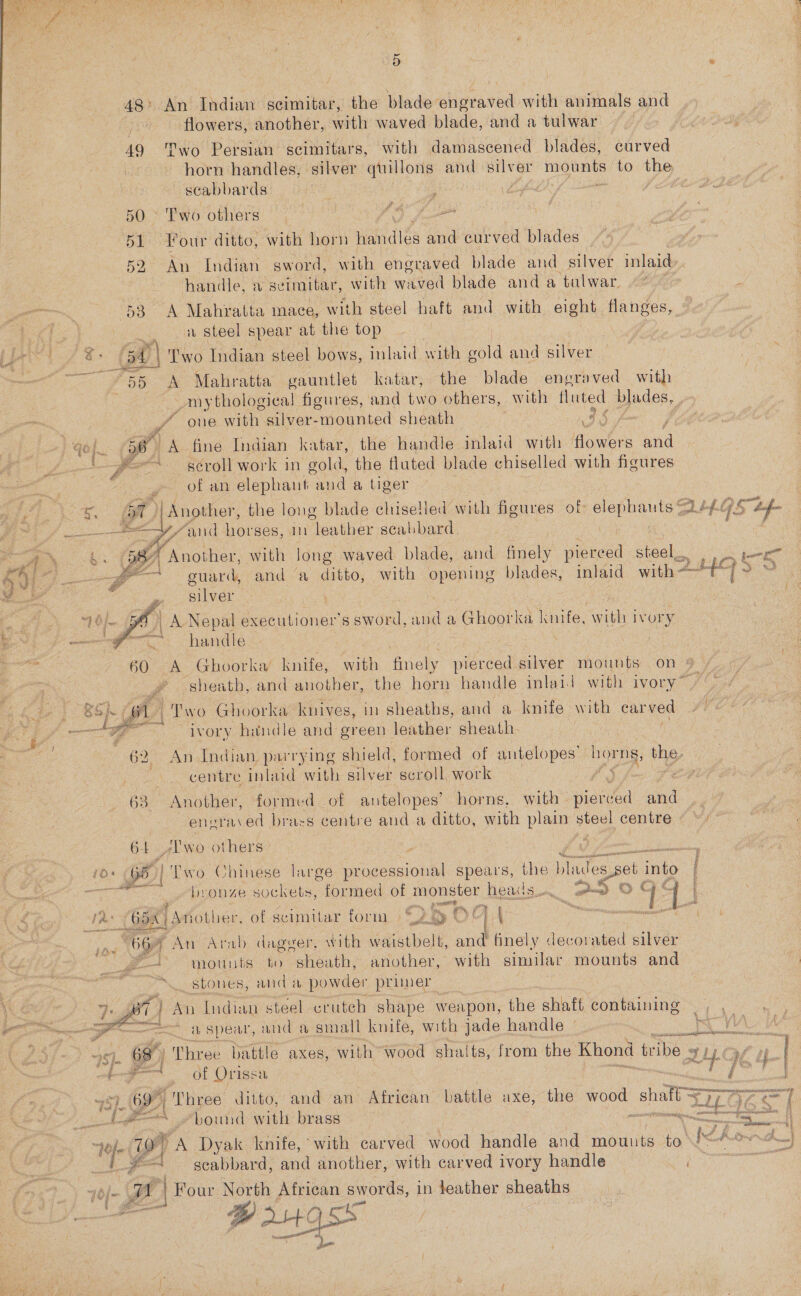 5
48 An Indian scimitar, the blade engraved with animals and
flowers, another, with waved blade, and a tulwar
49 Two Persian scimitars, with damascened blades, curved
horn handles, silver quillons and silver mounts to the
scabbards
50 Two others
51 Four ditto, with horn handles and curved blades
52 An Indian sword, with engraved blade and silver inlaid
handle, a scimitar, with waved blade and a tulwar
53 A Mahratta mace, with steel haft and with eight flanges,
a steel spear at the top
8. 54 Two Indian steel bows, inlaid with gold and silver
55 A Mahratta gauntlet katar, the blade engraved with
mythological figures, and two others, with fluted blades,
one with silver-mounted sheath
90/- 56 A fine Indian katar, the handle inlaid with flowers and
scroll work in gold, the fluted blade chiselled with figures
of an elephant and a tiger
57 Another, the long blade chiselled with figures of elephants
and horses, in leather scabbard
58 Another, with long waved blade, and finely pierced steel
guard, and a ditto, with opening blades, inlaid with
silver
59 A Nepal executioner's sword, and a Ghoorka knife, with ivory
handle
60 A Ghoorka knife, with finely pierced silver mounts on
sheath, and another, the horn handle inlaid with ivory
85/- 61 Two Ghoorka knives, in sheaths, and a knife with carved
ivory handle and green leather sheath
62 An Indian parrying shield, formed of antelopes' horns, the
centre inlaid with silver scroll work
63 Another, formed of antelopes' horns, with pierced and
engraved brass centre and a ditto, with plain steel centre
64 Two others
65 Two Chinese large processional spears, the blades set into
bronze sockets, formed of monster heads
65A Another, of scimitar form
66 An Arab dagger, with waistbelt, and finely decorated silver
mounts to sheath, another, with similar mounts and
stones, and a powder primer
67 An Indian steel crutch shape weapon, the shaft containing
a spear, and a small knife, with jade handle
68 Three battle axes, with wood shafts, from the Khond tribe
of Orissa
69 Three ditto, and an African battle axe, the wood shaft
bound with brass
70 A Dyak knife, with carved wood handle and mounts to
scabbard, and another, with carved ivory handle
71 Four North African swords, in leather sheaths